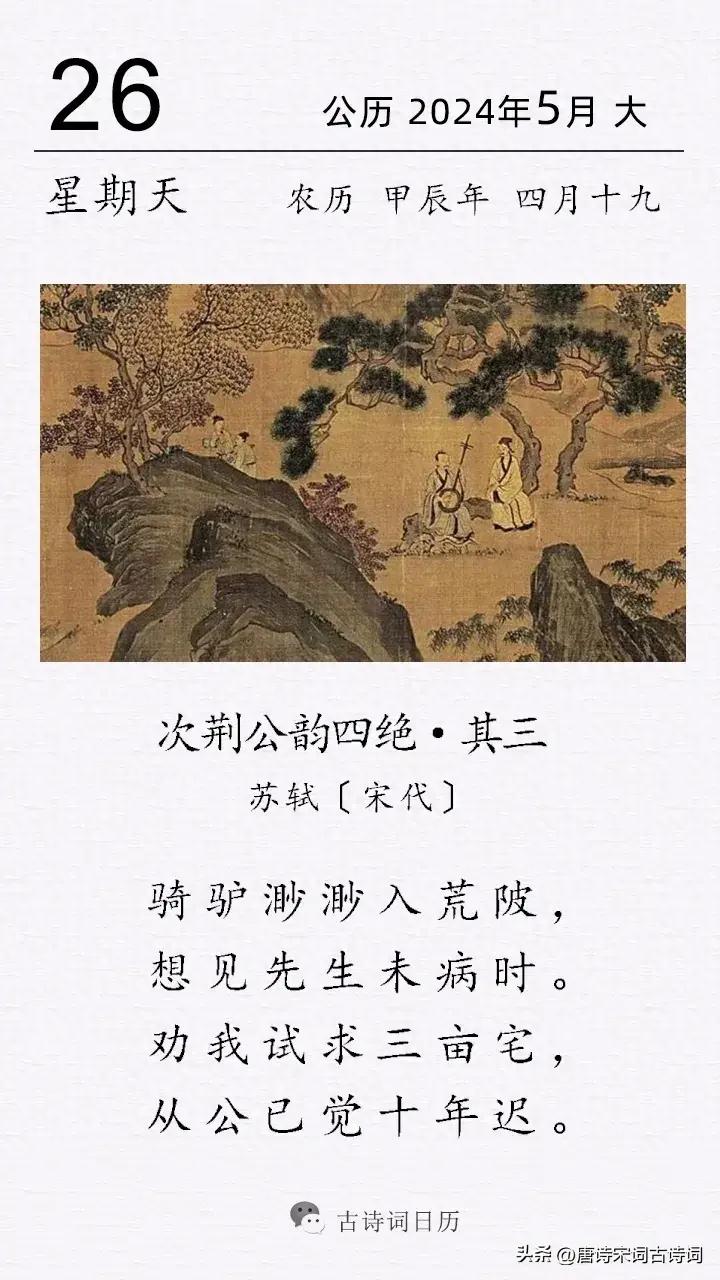 26
公历 2024年5月 大
星期天
农历 甲辰年 四月十九
次荆公韵四绝·其三
苏轼〔宋代〕
骑驴渺渺入荒陂，
想见先生未病时。
劝我试求三亩宅，
从公已觉十年迟。
古诗词日历
头条 @唐诗宋词古诗词